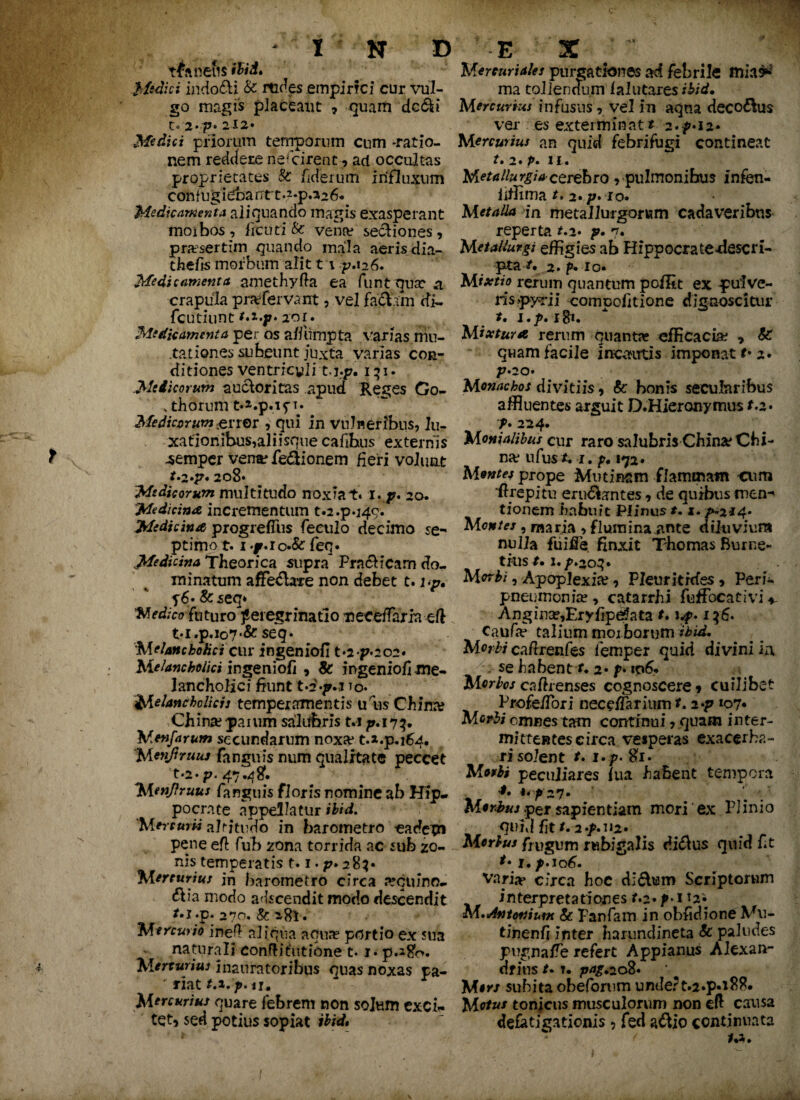 INDEX
taneus ibid.
Medici indocti & rudes empirici cur vul-
go magis placeant, quam docti
t. 2. p. 212.
Medici priorum temporum cum ratio-
nem reddere nescirent, ad occultas
proprietates & siderum influxum
confugiebant t.2.p.226.
Medicamenta aliquando magis exasperant
morbos, sicuti & venæ sectiones,
præsertim quando mala aeris dia-
thesis morbum alit t 1 p.126.
Medicamenta amethysta ea sunt quæ a
crapula præservant, vel factam di-
scutiunt t.2.p. 201.
Medicamenta per os assumpta varias mu-
tationes subeunt juxta varias con-
ditiones ventriculi t.1.p. 131.
Medicorum auctoritas apud Reges Go-
thorum t.2.p.151.
Medicorum error, qui in vulneribus, lu-
xationibus, aliisque casibus externis
semper venæ sectionem fieri volunt
t.2.p. 208.
Medicorum multitudo noxia t. 1. p. 20.
Medicinæ incrementum t.2.p.149.
Medicinæ progressus seculo decimo se-
ptimo t. 1.p.10.& seq.
Medicina Theorica supra Practicam do-
minatum affectare non debet t. 1.p.
56. & seq.
Medico futuro peregrinatio necessaria est
t.1.p.107.& seq.
Melancholici cur ingeniosi t.2.p.202.
Melancholici ingeniosi, & ingeniosi me-
lancholici fiunt t.2.p.110.
Melancholicis temperamentis usus Chinæ
Chinæ parum salubris t.1 p.173.
Mensarum secundarum noxæ t.2.p.164.
Menstruus sanguis num qualitate peccet
t.2. p. 47.48.
Menstruus sanguis floris nomine ab Hip-
pocrate appellatur ibid.
Mercurii altitudo in barometro eadem
pene est sub zona torrida ac sub zo-
nis temperatis t. 1. p. 283.
Mercurius in barometro circa æquino-
ctia modo adscendit modo descendit
t.1.p. 270. & 281.
Mercurio inest aliqua aquæ portio ex sua
naturali constitutione t. 1. p.280.
Mercurius inauratoribus quas noxas pa-
riat t.2. p. 11.
Mercurius quare febrem non solum exci-
tet, sed potius sopiat ibid.
Mercuriales purgationes ad febrile mias-
ma tollendum salutares ibid.
Mercurius infusus, vel in aqua decoctus
vermes exterminat t 2.p.12.
Mercurius an quid febrifugi contineat
t. 2. p. 11.
Metallurgia cerebro, pulmonibus infen-
sissima t. 2. p. 10.
Metalla in metallurgorum cadaveribus
reperta t.2. p. 7.
Metallurgi effigies ab Hippocrate descri-
pta t. 2. p. 10.
Mixtio rerum quantum possit ex pulve-
ris pyrii compositione dignoscitur
t. 1.p. 181.
Mixturæ rerum quantæ efficaciæ, &
quam facile incautis imponat t. 2.
p.20.
Monachos divitiis, & bonis secularibus
affluentes arguit D.Hieronymus t.2.
p. 224.
Monialibus cur raro salubris Chinæ Chi-
næ usus t. 1. p. 172.
Montes prope Mutinam flammam cum
strepitu eructantes, de quibus men-
tionem habuit Plinus t. 1. p.214.
Montes, maria, flumina ante diluvium
nulla fuisse finxit Thomas Burne-
tius t. 1. p.203.
Morbi, Apoplexiæ, Pleuritides, Peri-
pneumoniæ, catarrhi suffocativi,
Anginæ, Erysipelata t. 1.p. 136.
causæ talium morborum ibid.
Morbi castrenses semper quid divini in
se habent t. 2. p. 106.
Morbos castrenses cognoscere, cuilibet
Professori necessarium t. 2.p 107.
Morbi omnes tam continui, quam inter-
mittentes circa vesperas exacerba-
ri solent t. 1.p. 81.
Morbi peculiares sua habent tempora
t. 1. p 27.
Morbus per sapientiam mori ex Plinio
quid sit t. 2.p.112.
Morbus frugum rubigalis dictus quid sit
t. 1. p.106.
Variæ circa hoc dictum Scriptorum
interpretationes t.2. p. 112.
M. Antonium & Pansam in obsidione Mu-
tinensi inter harundineta & paludes
pugnasse refert Appianus Alexan-
drius t. 1. pag.208.
Mors subita obesorum unde? t.2.p.188.
Motus tonicus musculorum non est causa
defatigationis, sed actio continuata
t.2.